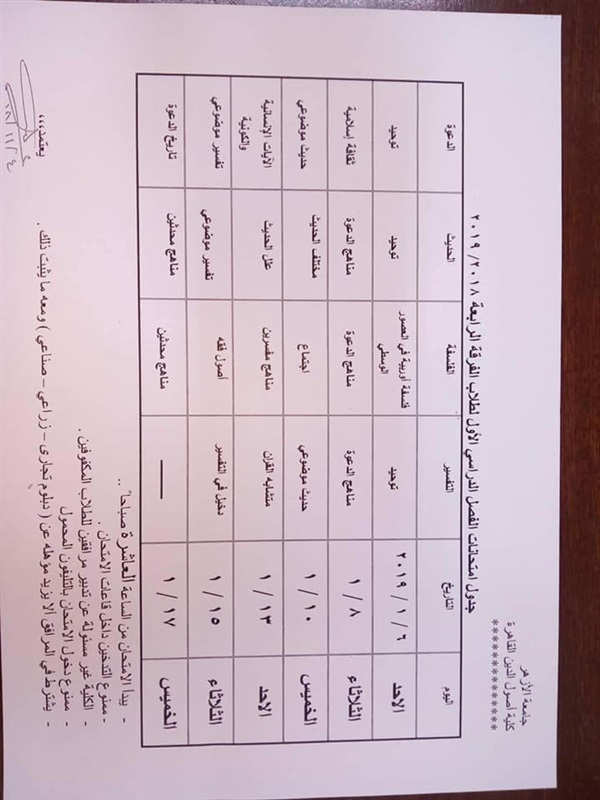 جامعة الأزهر
كلية أصول الدين القاهرة
**************
جدول امتحانات الفصل الدراسي الأول لطلاب الفرقة الرابعة ٢٠١٨ / ٢٠١٩
اليوم التاريخ التفسير الفلسفة الحديث الدعوة
الاحد ٦ / ١ / ٢٠١٩ توحيد فلسفة أوربية في العصور الوسطي توحيد توحيد
الثلاثاء ٨ / ١ مناهج الدعوة مناهج الدعوة مناهج الدعوة ثقافة إسلامية
الخميس ١٠ / ١ حديث موضوعي اجتماع مختلف الحديث حديث موضوعي
الاحد ١٣ / ١ متشابه القران مناهج مفسرين علل الحديث الآيات الإنسانية والكونية
الثلاثاء ١٥ / ١ دخيل في التفسير أصول فقه تفسير موضوعي تفسير موضوعي
الخميس ١٧ / ١ —— مناهج محدثين مناهج محدثين تاريخ الدعوة
- يبدأ الامتحان من الساعة العاشرة صباحا ..
- ممنوع التدخين داخل قاعات الامتحان .
- الكلية غير مسئولة عن تدبير مرافقين للطلاب المكفوفين .
- ممنوع دخول الامتحان بالتليفون المحمول
- يشترط في المرافق ألا يزيد مؤهله عن ( دبلوم تجارى – زراعي – صناعي ) ومعه ما يثبت ذلك .
يعتمد،،،